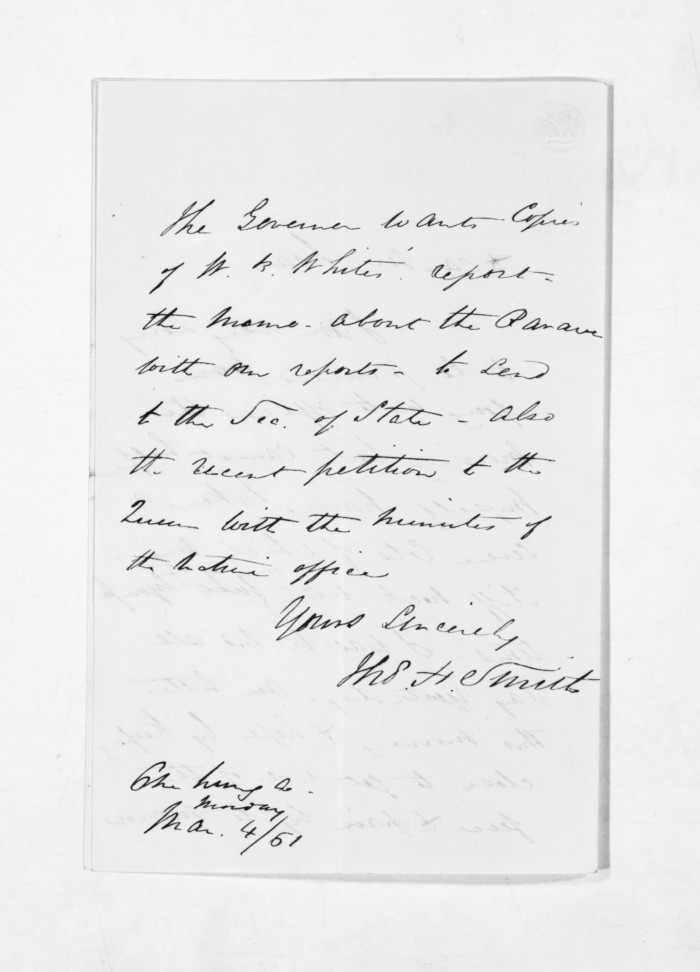 The Governor wants Copies
of W. B. White's report -
the memo - about the
with our reports - to send
to the Sec. of State - also
the recent petition to the
Queen with the minutes of
the Native office
Yours Sincerely
Thos. H. Smith
Monday
Mar. 4/61